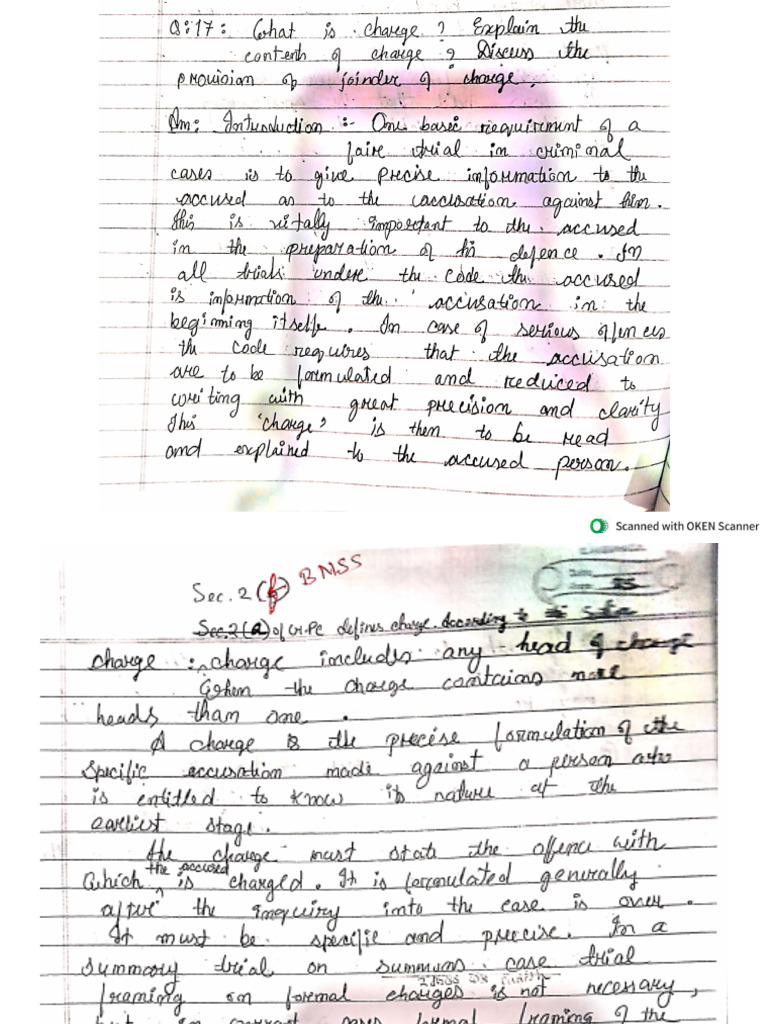 Q:17: What is charge? Explain the
contents of charge? Discuss the
provision of joinder of charge.
Ans: Introduction :- One basic requirement of a
faire trial in criminal
cases is to give precise information to the
accused as to the accusation against him.
This is vitally important to the accused
in the preparation of his defence. In
all trials under the code the accused
is information of the accusation in the
beginning itselfe. In case of serious offences
the code requires that the accusation
are to be formulated and reduced to
writing with great precision and clarity
This 'charge' is then to be read
and explained to the accused person.
Scanned with OKEN Scanner
Sec. 2 (f) BNSS
Sec.2(a) of Cr.Pc defines charge. According to
charge :- charge includes any head of charge
When the charge contains more
heads than one.
A charge is the precise formulation of the
specific accusation made against a person who
is entitled to know its nature at the
earliest stage.
The charge must state the offence with
which the accused is charged. It is formulated generally
after the inquiry into the case is over.
It must be specific and precise. In a
summary trial on summons case trial
framing on formal charges is not necessary,
but in warrant cases formal framing of the